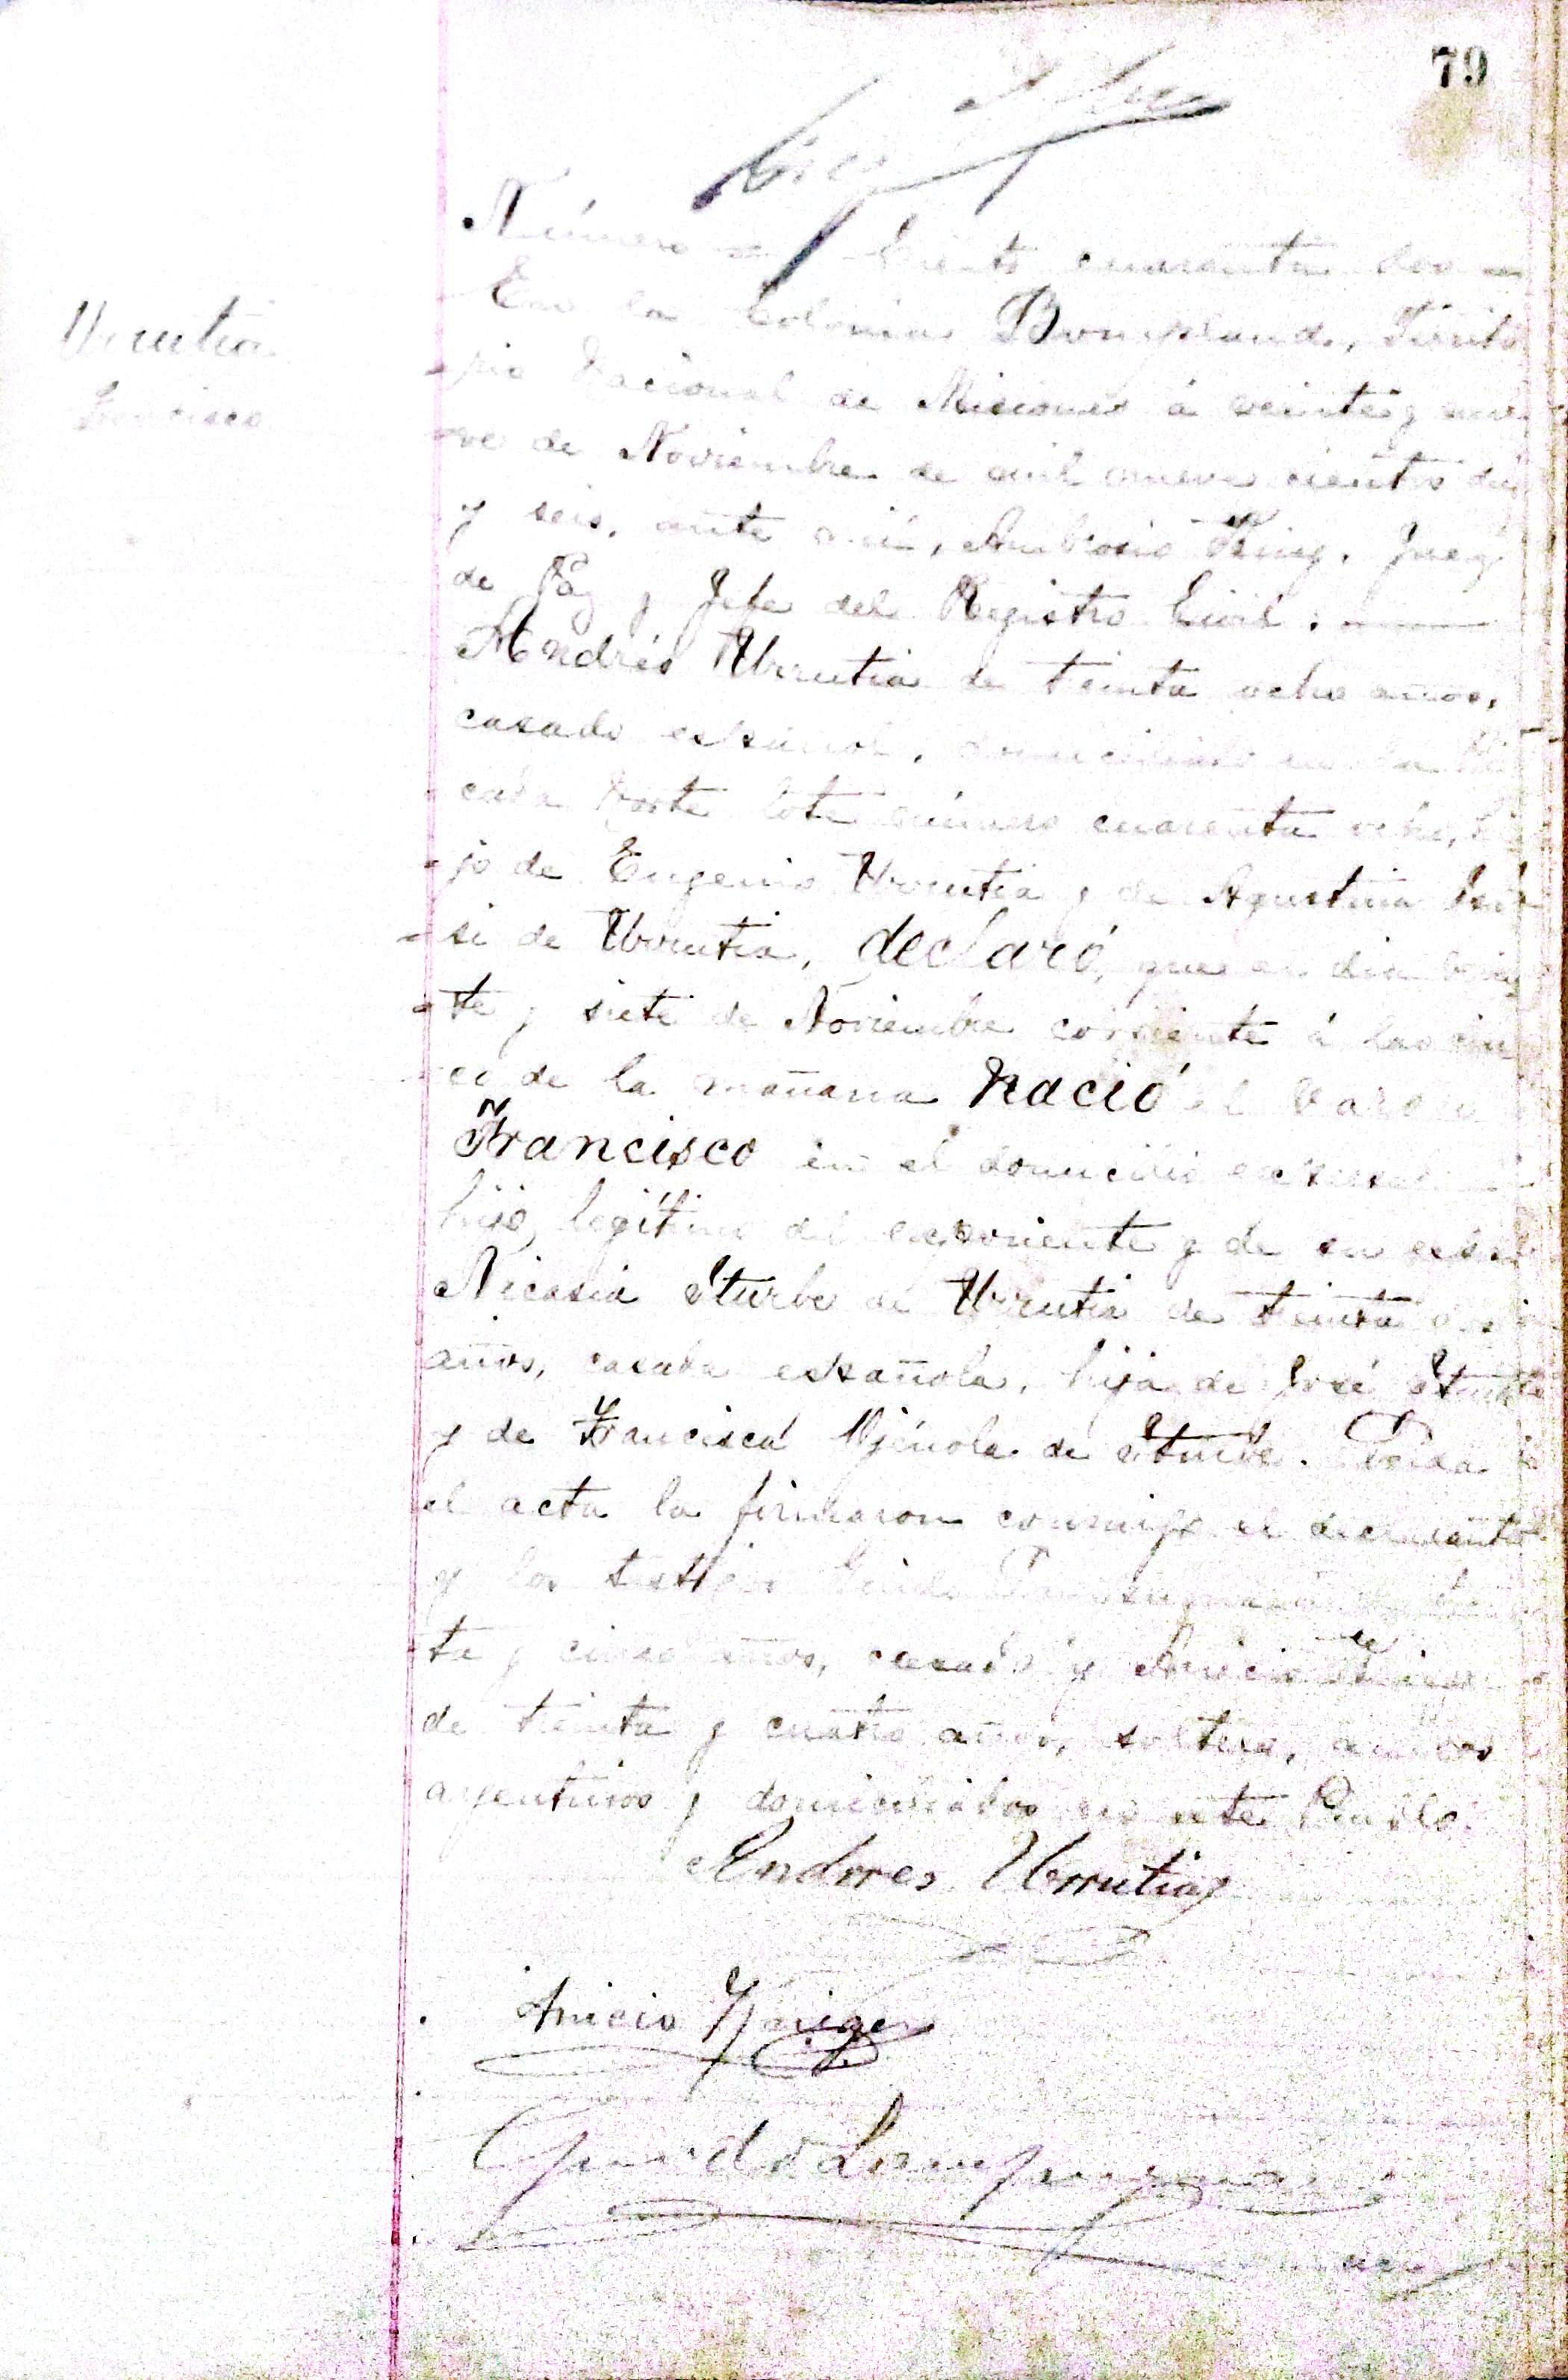 79
Número ciento cuarenta dos
Urrutia
Francisco
En la Colonia Bompland, Territo
rio Nacional de Misiones á veinte y nue
ve de Noviembre de mil nueve cientos diez
y seis, ante mi, Ambrosio King. Juez
de Paz y Jefe del Registro Civil.
Andrés Urrutia de treinta ocho años,
casado español, domiciliado en la Pi
cada Norte lote número cuarenta ocho, hi
jo de Eugenio Urrutia y de Agustina
si de Urrutia, declaró, que en dia vein
te y siete de Noviembre corriente á las cin
co de la mañana nació el varon
Francisco en el domicilio expresado
hijo legítimo del exponente y de su esposa
Nicasia Iturbe de Urrutia de treinta
años, casada española, hija de José Iturbe
y de Francisca de Iturbe. Leida
el acta la firmaron conmigo el declarante
y los testigos Guido
ta y cinco años, casado y Amicio
de treinta y cuatro años, soltero, ambos
argentinos y domiciliados en este Pueblo.
Andres Urrutia
Amicio
Guido